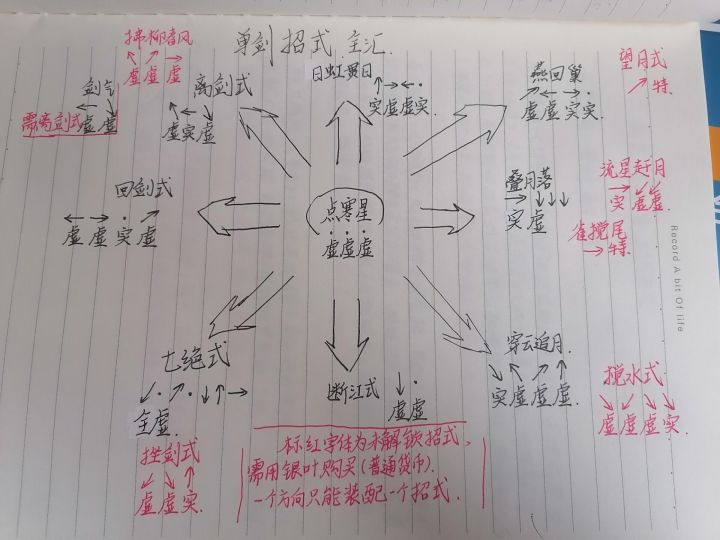 单剑招式主汇.
拂柳清风
↖ ↗ →
虚虚虚
剑气
← ↘
虚虚
需离剑式
离剑式
↖← ↘
虚实虚
日虹贯日
↑→←·
实虚虚实
燕回巢
↗ ← → ·
虚虚实实
望月式
↗特.
回剑式
← → · ↗
虚虚实虚
点寒星
· · ·
虚虚虚
叠月落
→ ↓↓↓
实虚
流星赶月
→ ↙↙
实虚虚
雀搅尾
→特.
七绝式
↙· ↗ · ↓↑→
主虚.
断江式
↓ ·
虚虚
穿云追月.
↘ ↖ ↗ ↑
实虚虚虚
搅水式
↘ ↙ ↙ ↘
虚虚虚实
挫剑式
↙ ↘ ↑
虚虚实.
标红字体为未解锁招式,
需用银叶购买(普通货币).
一个方向只能装配一个招式.
Record A bit Of life